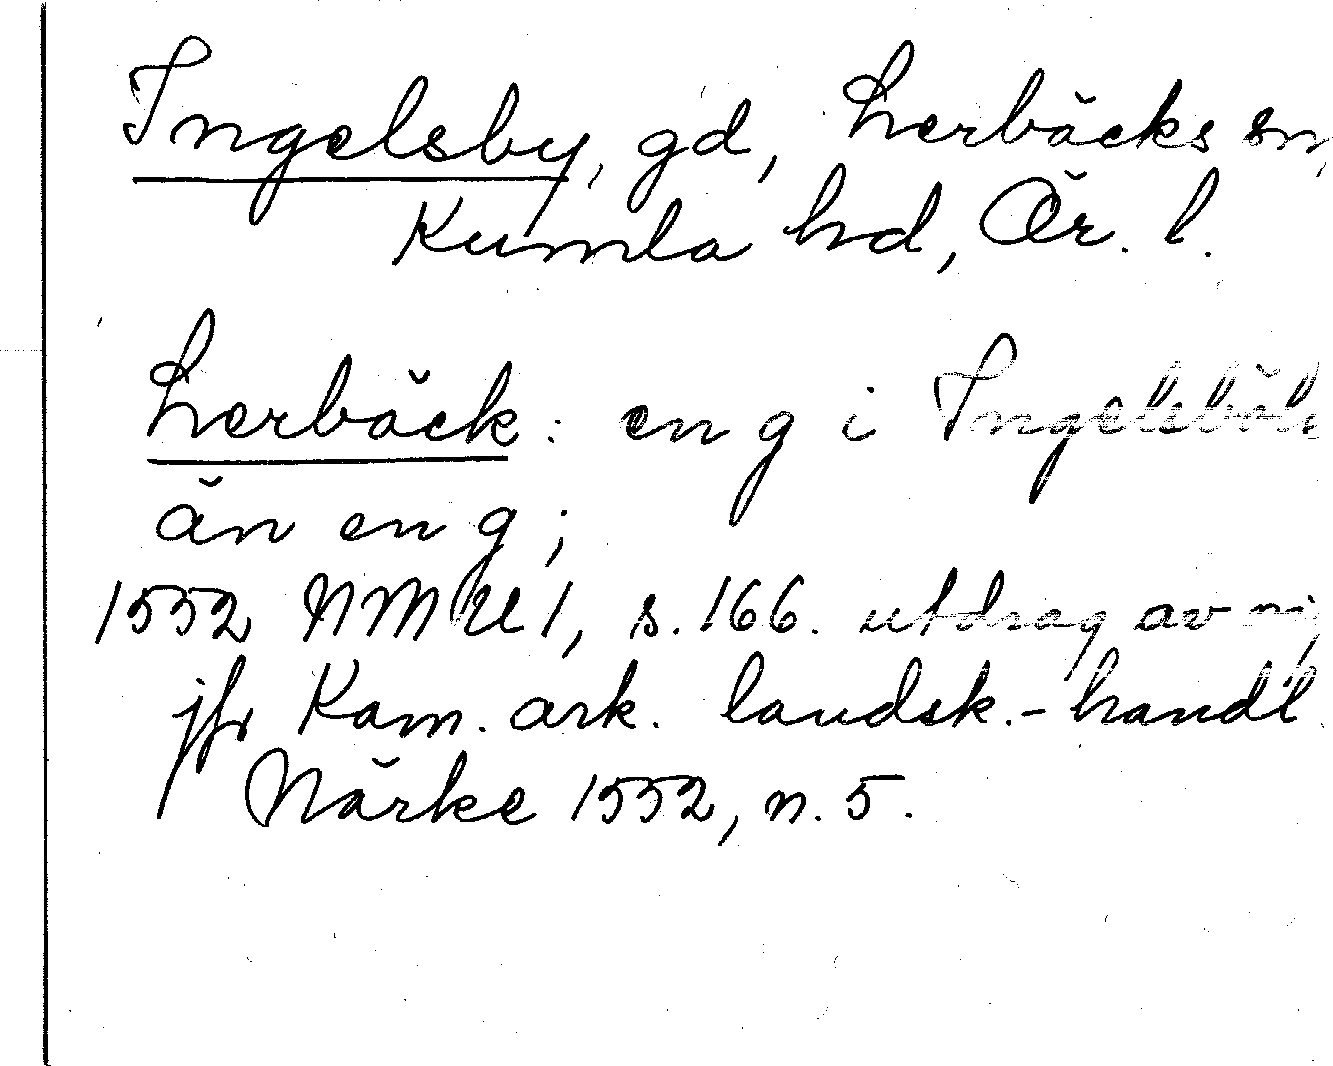 Ingelsby, gd, Lerbäcks sn,
Kumla hd, Ör. l.
Lerbäck: eng i
än eng;
1552 NMU 1, s. 166. utdrag av
jfr Kam. ark. landsk.-handl.
Närke 1552, n. 5.